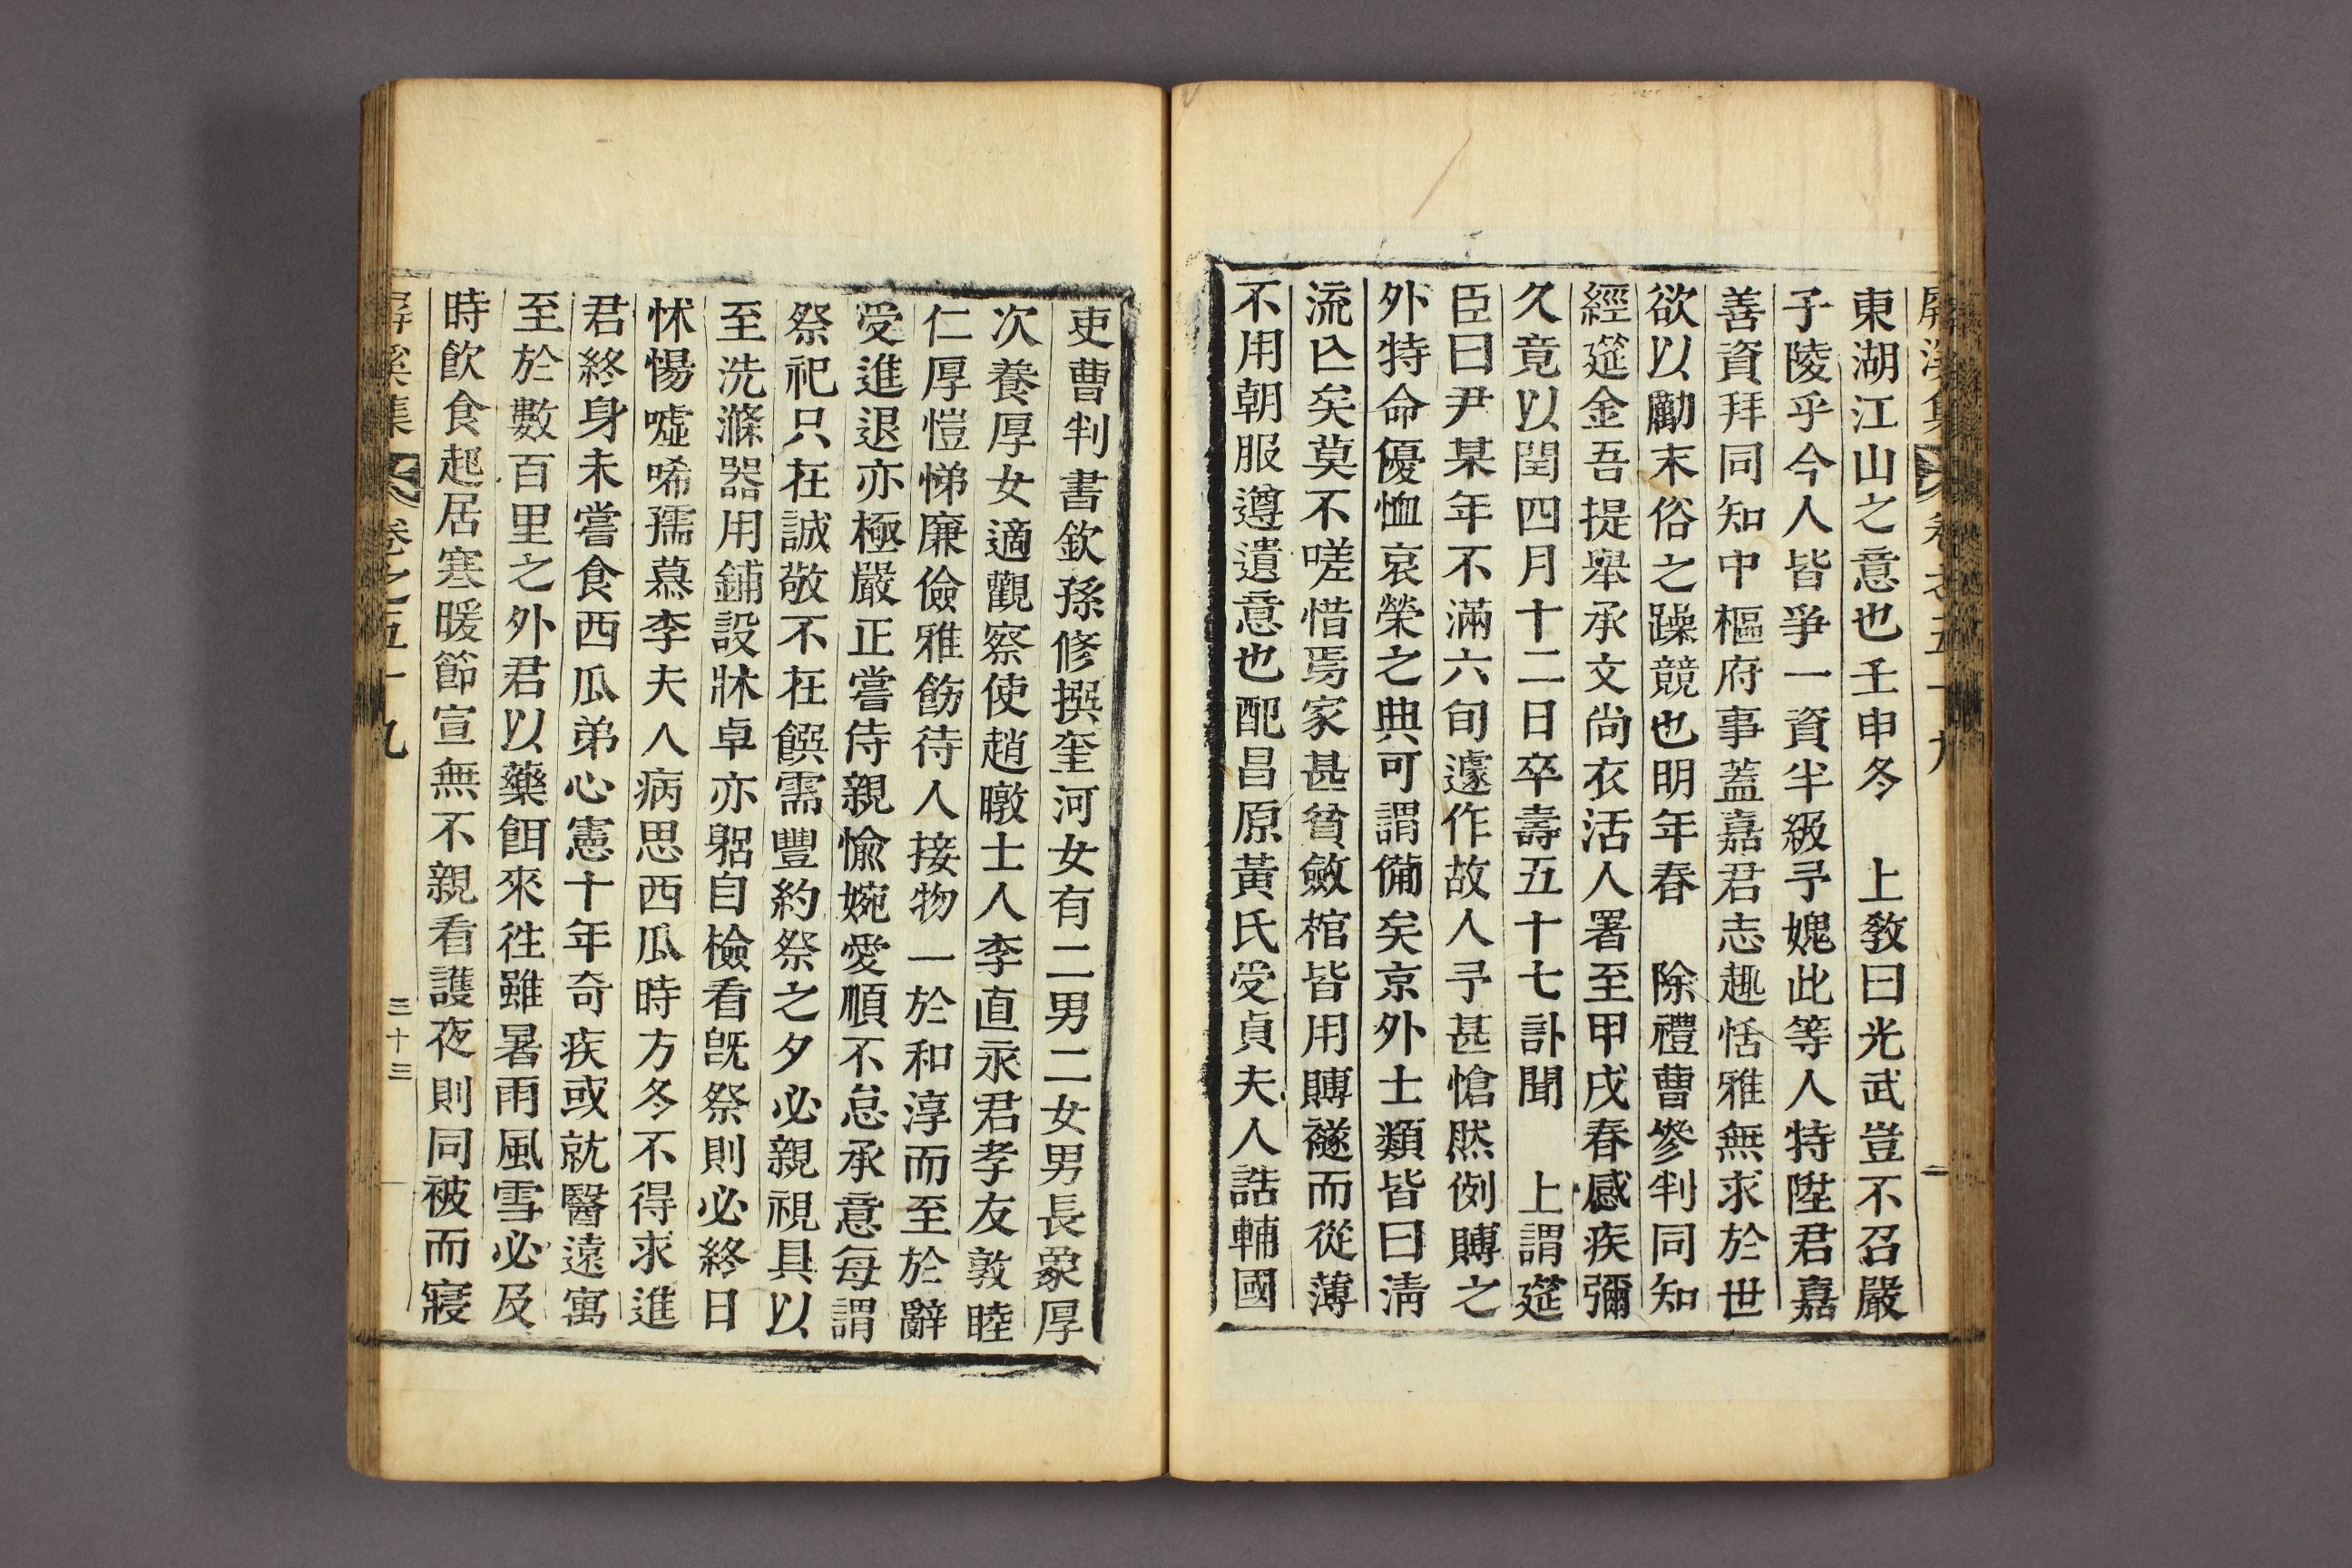 屛溪集 卷之五十九
東湖江山之意也壬申冬　上敎曰光武豈不召嚴
子陵乎今人皆爭一資半級予媿此等人特陞君嘉
善資拜同知中樞府事蓋嘉君志趣恬雅無求於世
欲以勵末俗之躁競也明年春　除禮曹參判同知
經筵金吾提擧承文尙衣活人署至甲戌春感疾彌
久竟以閏四月十二日卒壽五十七訃聞　上謂筵
臣曰尹某年不滿六旬遽作故人予甚愴然例賻之
外特命優恤哀榮之典可謂備矣京外士類皆曰淸
流亾矣莫不嗟惜焉家甚貧斂棺皆用賻襚而從薄
不用朝服遵遺意也配昌原黃氏受貞夫人誥輔國
吏曹判書欽孫修撰奎河女有二男二女男長象厚
次養厚女適觀察使趙暾士人李直永君孝友敦睦
仁厚愷悌廉儉雅飭待人接物一於和淳而至於辭
受進退亦極嚴正嘗侍親愉婉愛順不怠承意每謂
祭祀只在誠敬不在饌需豐約祭之夕必親視具以
至洗滌器用鋪設牀卓亦躬自檢看旣祭則必終日
怵惕噓唏孺慕李夫人病思西瓜時方冬不得求進
君終身未嘗食西瓜弟心憲十年奇疾或就醫遠寓
至於數百里之外君以藥餌來往雖暑雨風雪必及
時飮食起居寒暖節宣無不親看護夜則同被而寢
屛溪集 卷之五十九 三十三